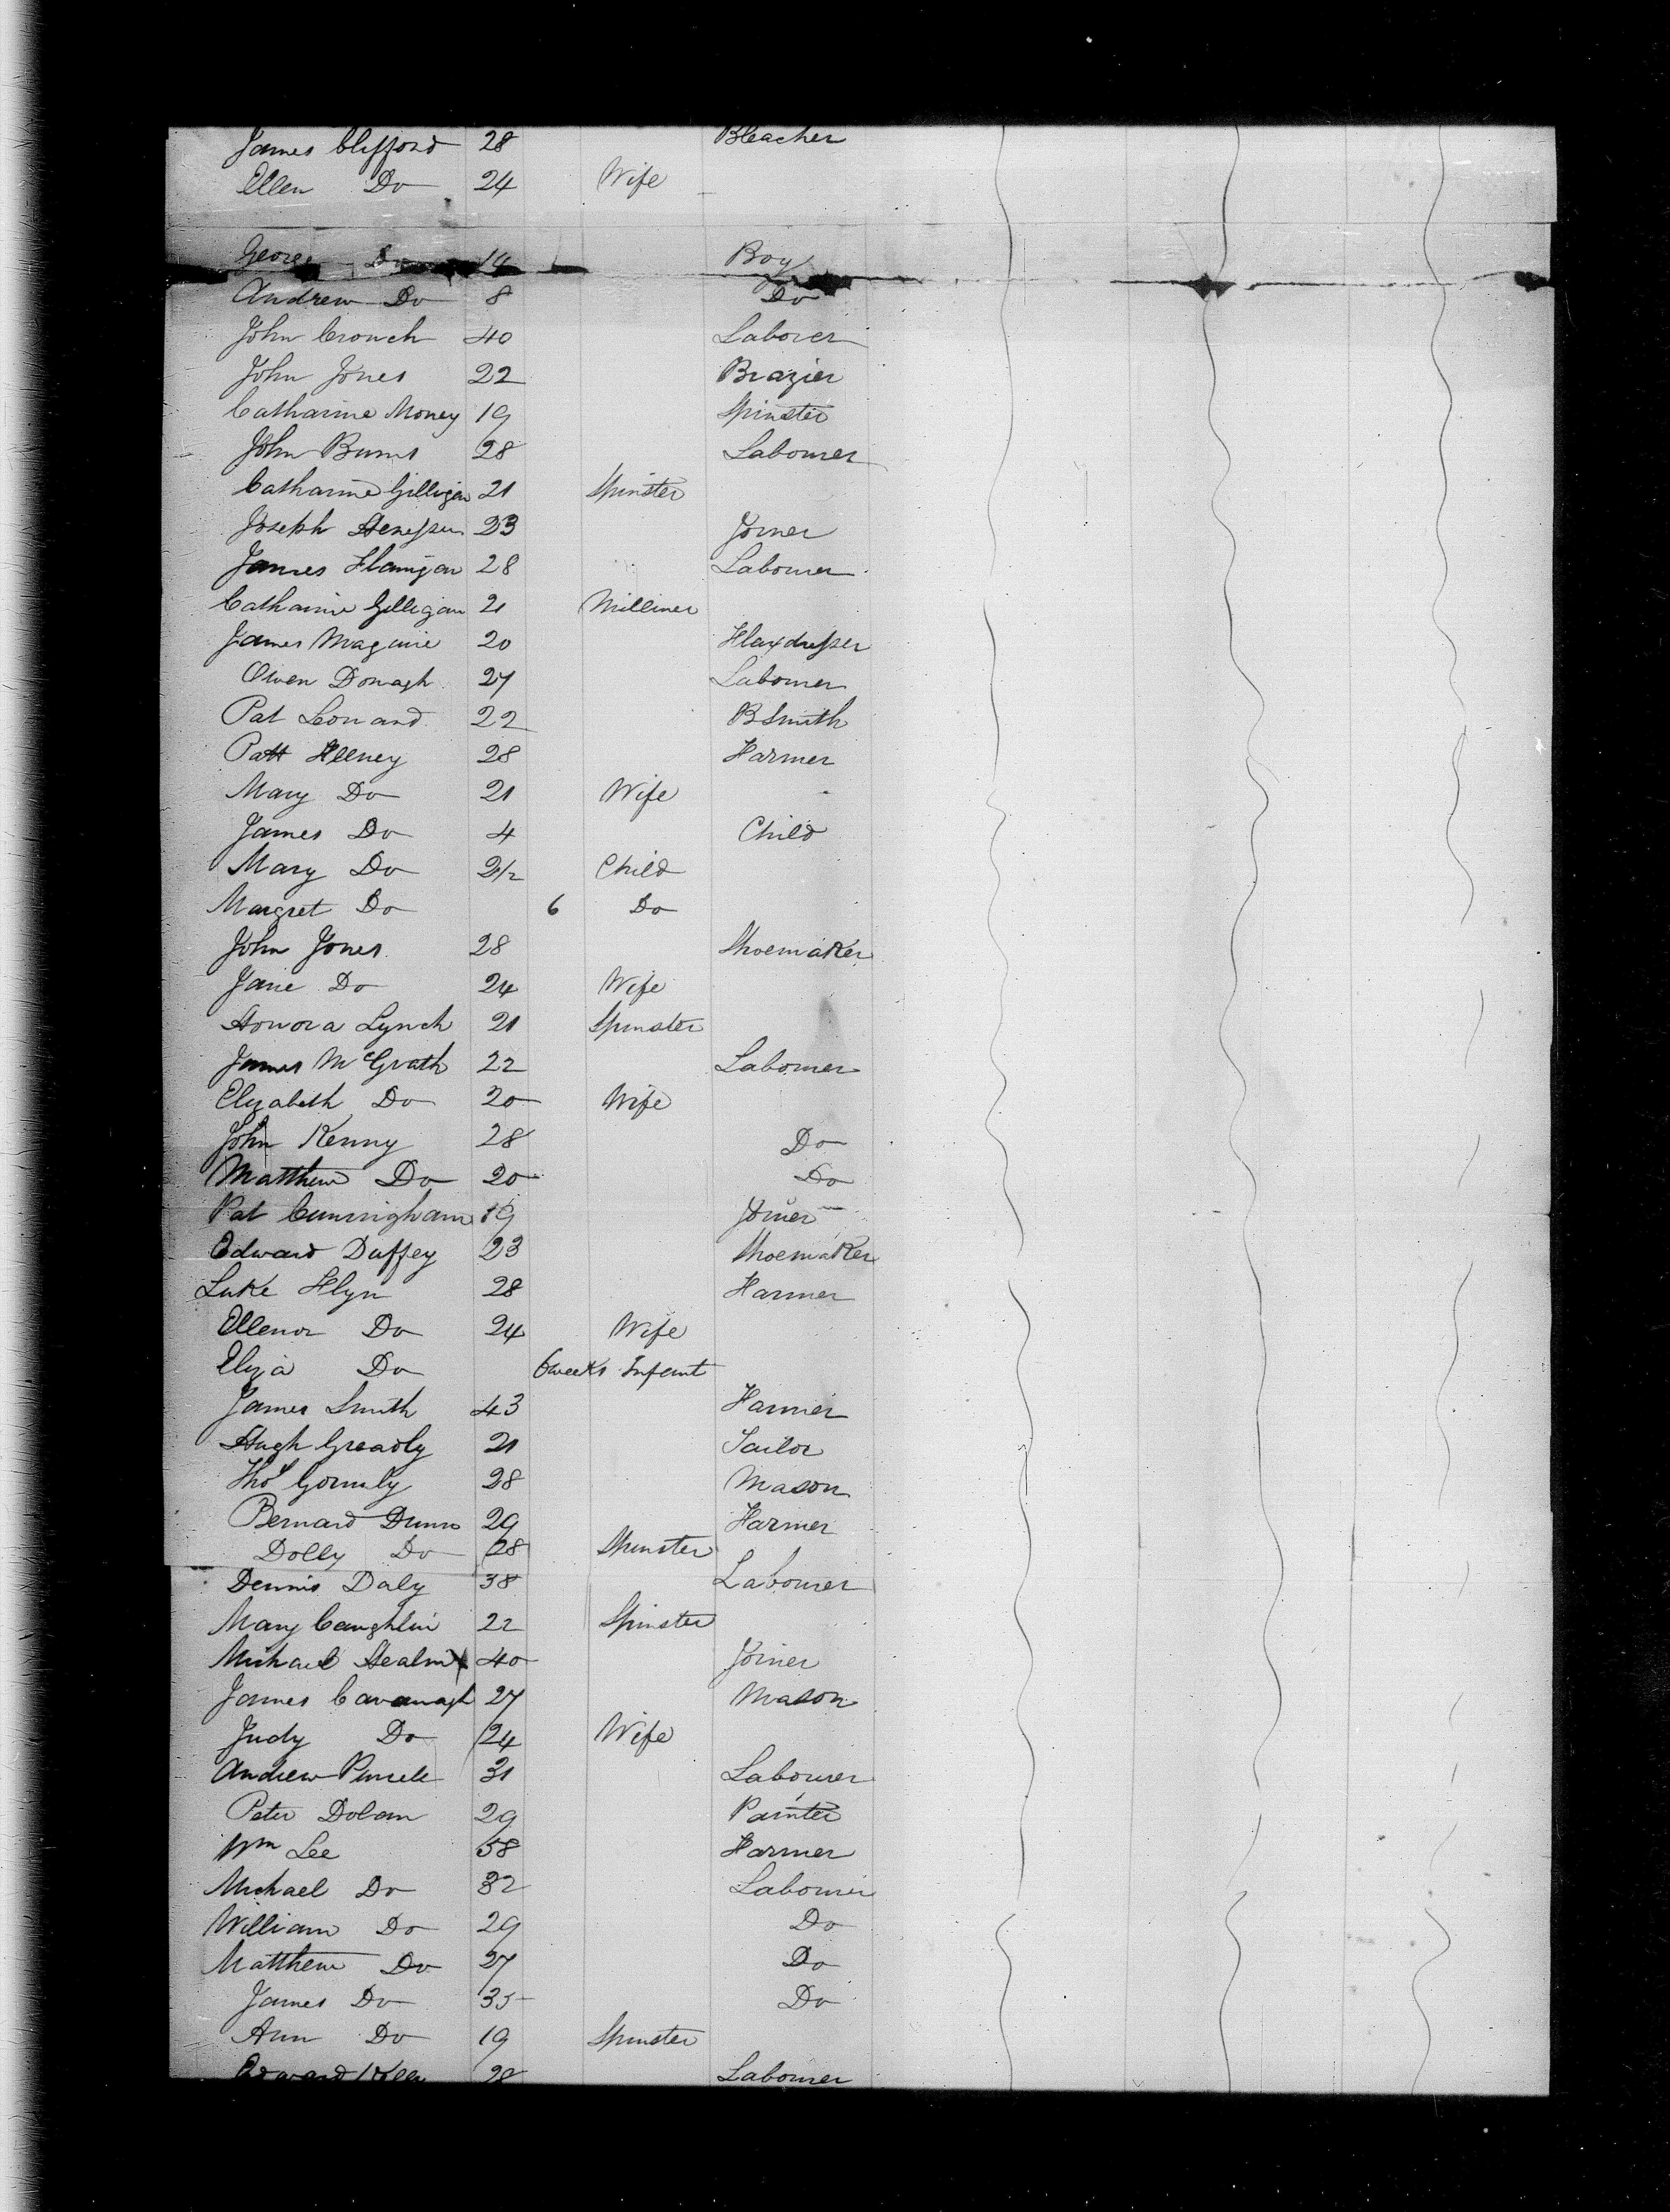 James Clifford 28 Bleacher
Ellen Do 24 Wife
George Do 14 Boy
Andrew Do 8 Do
John Crouch 40 Laborer
John Jones 22 Brazier
Catharine Money 19 Spinster
John Burns 28 Labourer
Catharine Gilligan 21 Spinster
Joseph 23 Joiner
James Flanigan 28 Labourer
Catharine Gilligan 21 Milliner
James Maguire 20 Flaxdresser
Owen Donagh 27 Labourer
Pat Leonard 22 B Smith
Patt Heeney 28 Farmer
Mary Do 21 Wife
James Do 4 Child
Mary Do 2½ Child
Margret Do 6 Do
John Jones 28 Shoemaker
Jane Do 24 Wife
Honora Lynch 21 Spinster
James McGrath 22 Labourer
Elizabeth Do 20 Wife
John Kenny 28 Do
Matthew Do 20 Do
Pat Cunningham 19 Joiner
Edward Duffey 23 Shoemaker
Luke Flyn 28 Farmer
Ellenor Do 24 Wife
Eliza Do 6 weeks Infant
James Smith 43 Farmer
Hugh Greadly 21 Tailor
Thos Gormly 28 Mason
Bernard Dunn 29 Farmer
Dolly Do 28 Spinster
Dennis Daly 38 Labourer
Mary Caughlin 22 Spinster
Michael 40 Joiner
James Cavanagh 27 Mason
Judy Do 24 Wife
Andrew Purcele 31 Labourer
Peter Dolan 29 Painter
Wm Lee 58 Farmer
Michael Do 32 Labourer
William Do 29 Do
Matthew Do 27 Do
James Do 35 Do
Ann Do 19 Spinster
Edward Kelly 28 Labourer